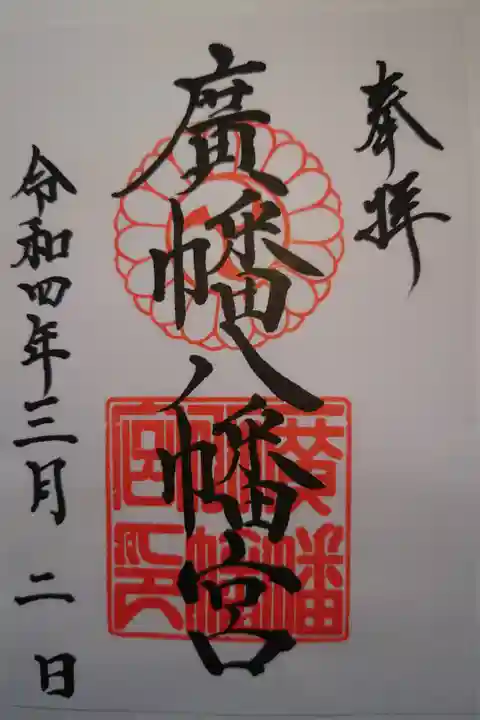 奉拝
廣幡八幡宮
廣幡八幡宮印
令和四年三月二日